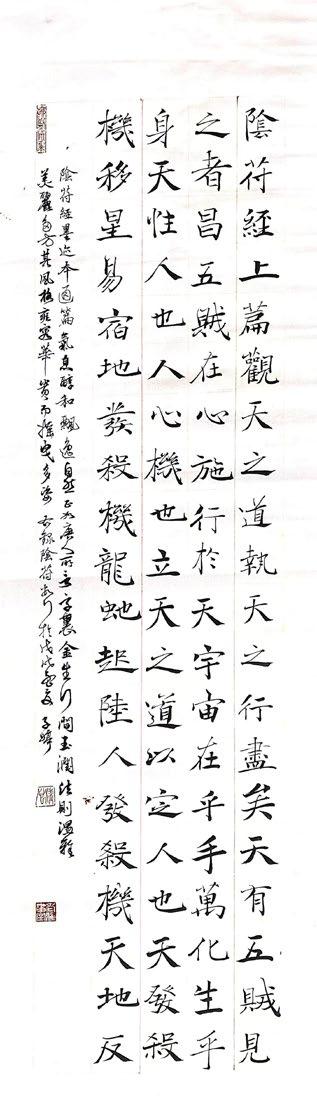 陰符經上篇觀天之道執天之行盡矣天有五賊見
之者昌五賊在心施行於天宇宙在乎手萬化生乎
身天性人也人心機也立天之道以定人也天發殺
機移星易宿地發殺機龍虵起陸人發殺機天地反
陰符經墨迹本通篇氣息醇和飄逸自然正如唐人所云字裏金生行間玉潤法則溫雅
美麗多方其風格雍容華貴而搖曳多姿